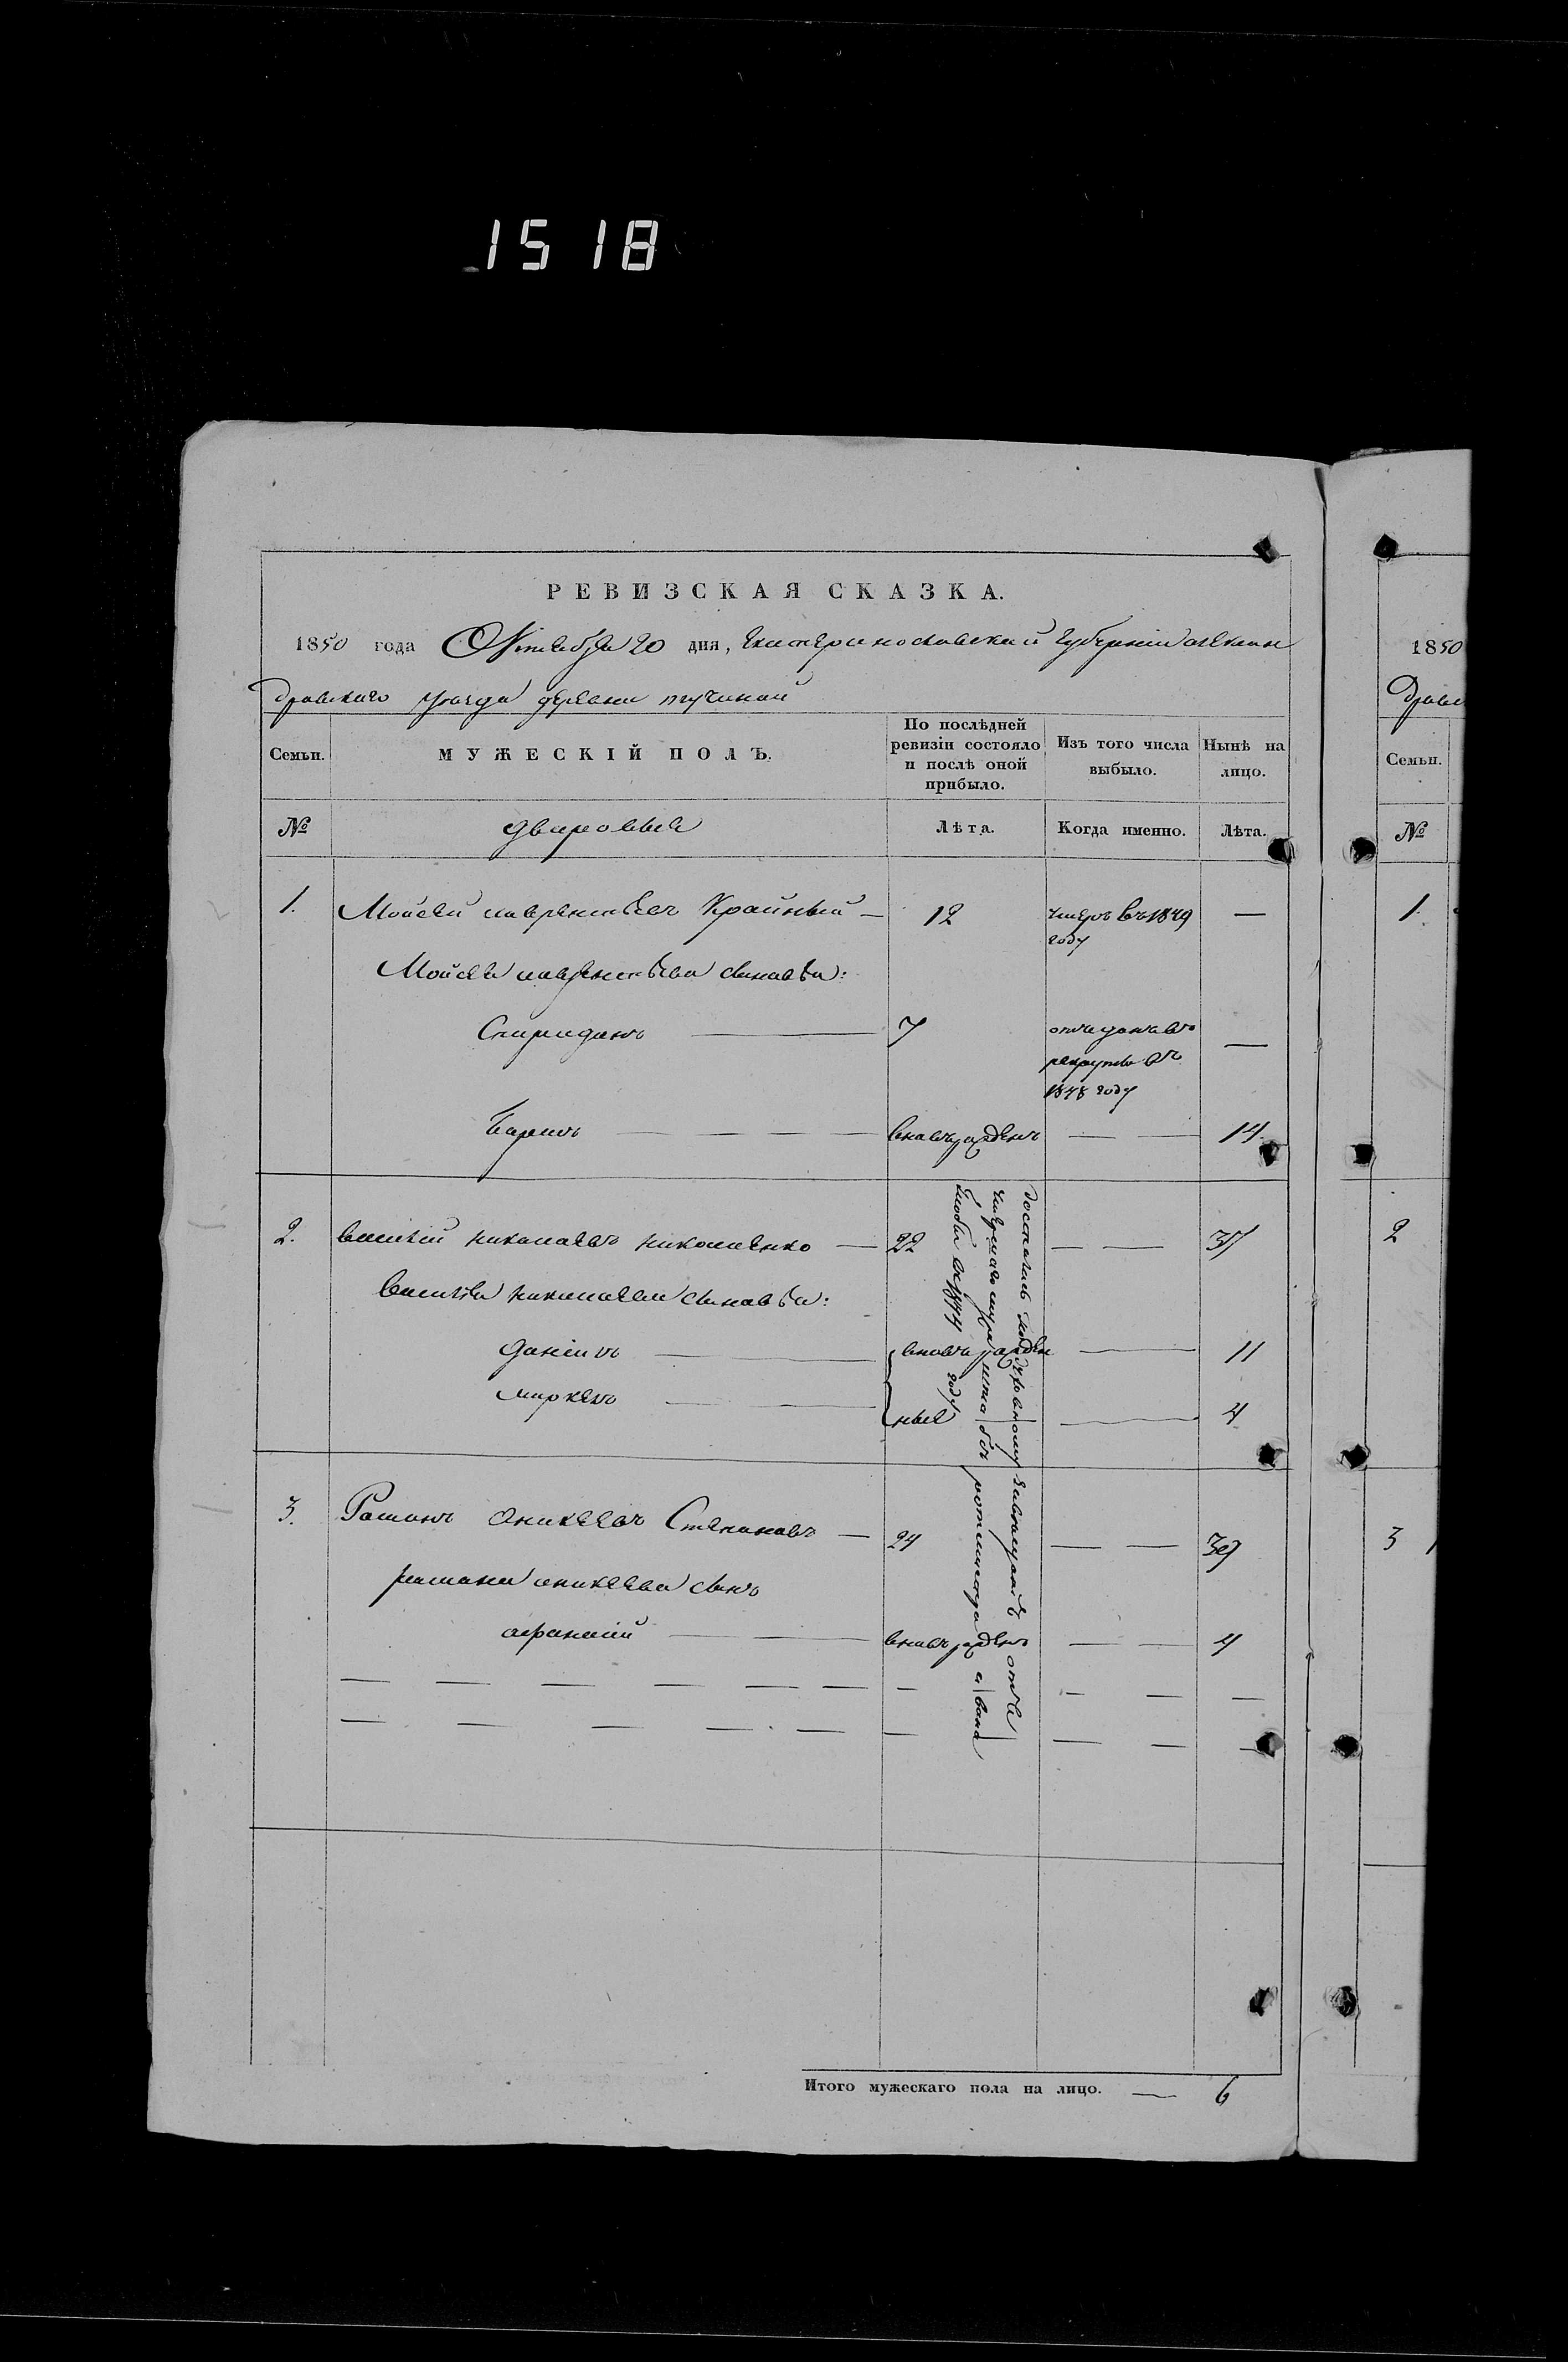 1518
РЕВИЗСКАЯ СКАЗКА.
1850 года Октября 20 дня, Екатеринославской Губерніи Алексан
дровскаго уезда деревни
Семьи. МУЖЕСКІЙ ПОЛЪ. По послѣдней ревизіи состояло и послѣ оной прибыло. Изъ того числа выбыло. Нынѣ на лицо.
№ дворовые Лѣта. Когда именно. Лѣта.
1. Мойсей лаврентьевъ Крайный — 12 умеръ въ 1849 —
году
Мойсея лаврентьева сыновья:
Спиридонъ — 7 отчиданъ въ —
рекруты въ
1848 году
Борисъ — — — — вновь рожденъ — — 14
2. василій николаевъ николаенко — 22 — — 37
василія николаева сыновья:
Даніилъ — — вновь рожден — 11
маркелъ — — ные — 4
достались
году
3. Романъ Аникеевъ Степановъ — 24 — — 39
романа аникеева сынъ
афанасій — — вновь рожденъ — — 4
Итого мужескаго пола на лицо. — 6
1850
Семьи.
№
1.
2
3